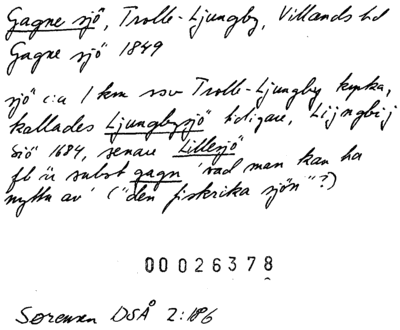 Gagne sjö, Trolle-Ljungby, Villands hd
Gagne sjö 1849
sjö c:a 1 km sov Trolle-Ljungby kyrka,
kallades Ljungbysjö tidigare, Lijngbij
Siö 1684, senare Lillesjö
fl är subst gagn 'vad man kan ha
nytta av' ("den fiskrika sjön"?)
00026378
Sørensen DSÅ 2:186